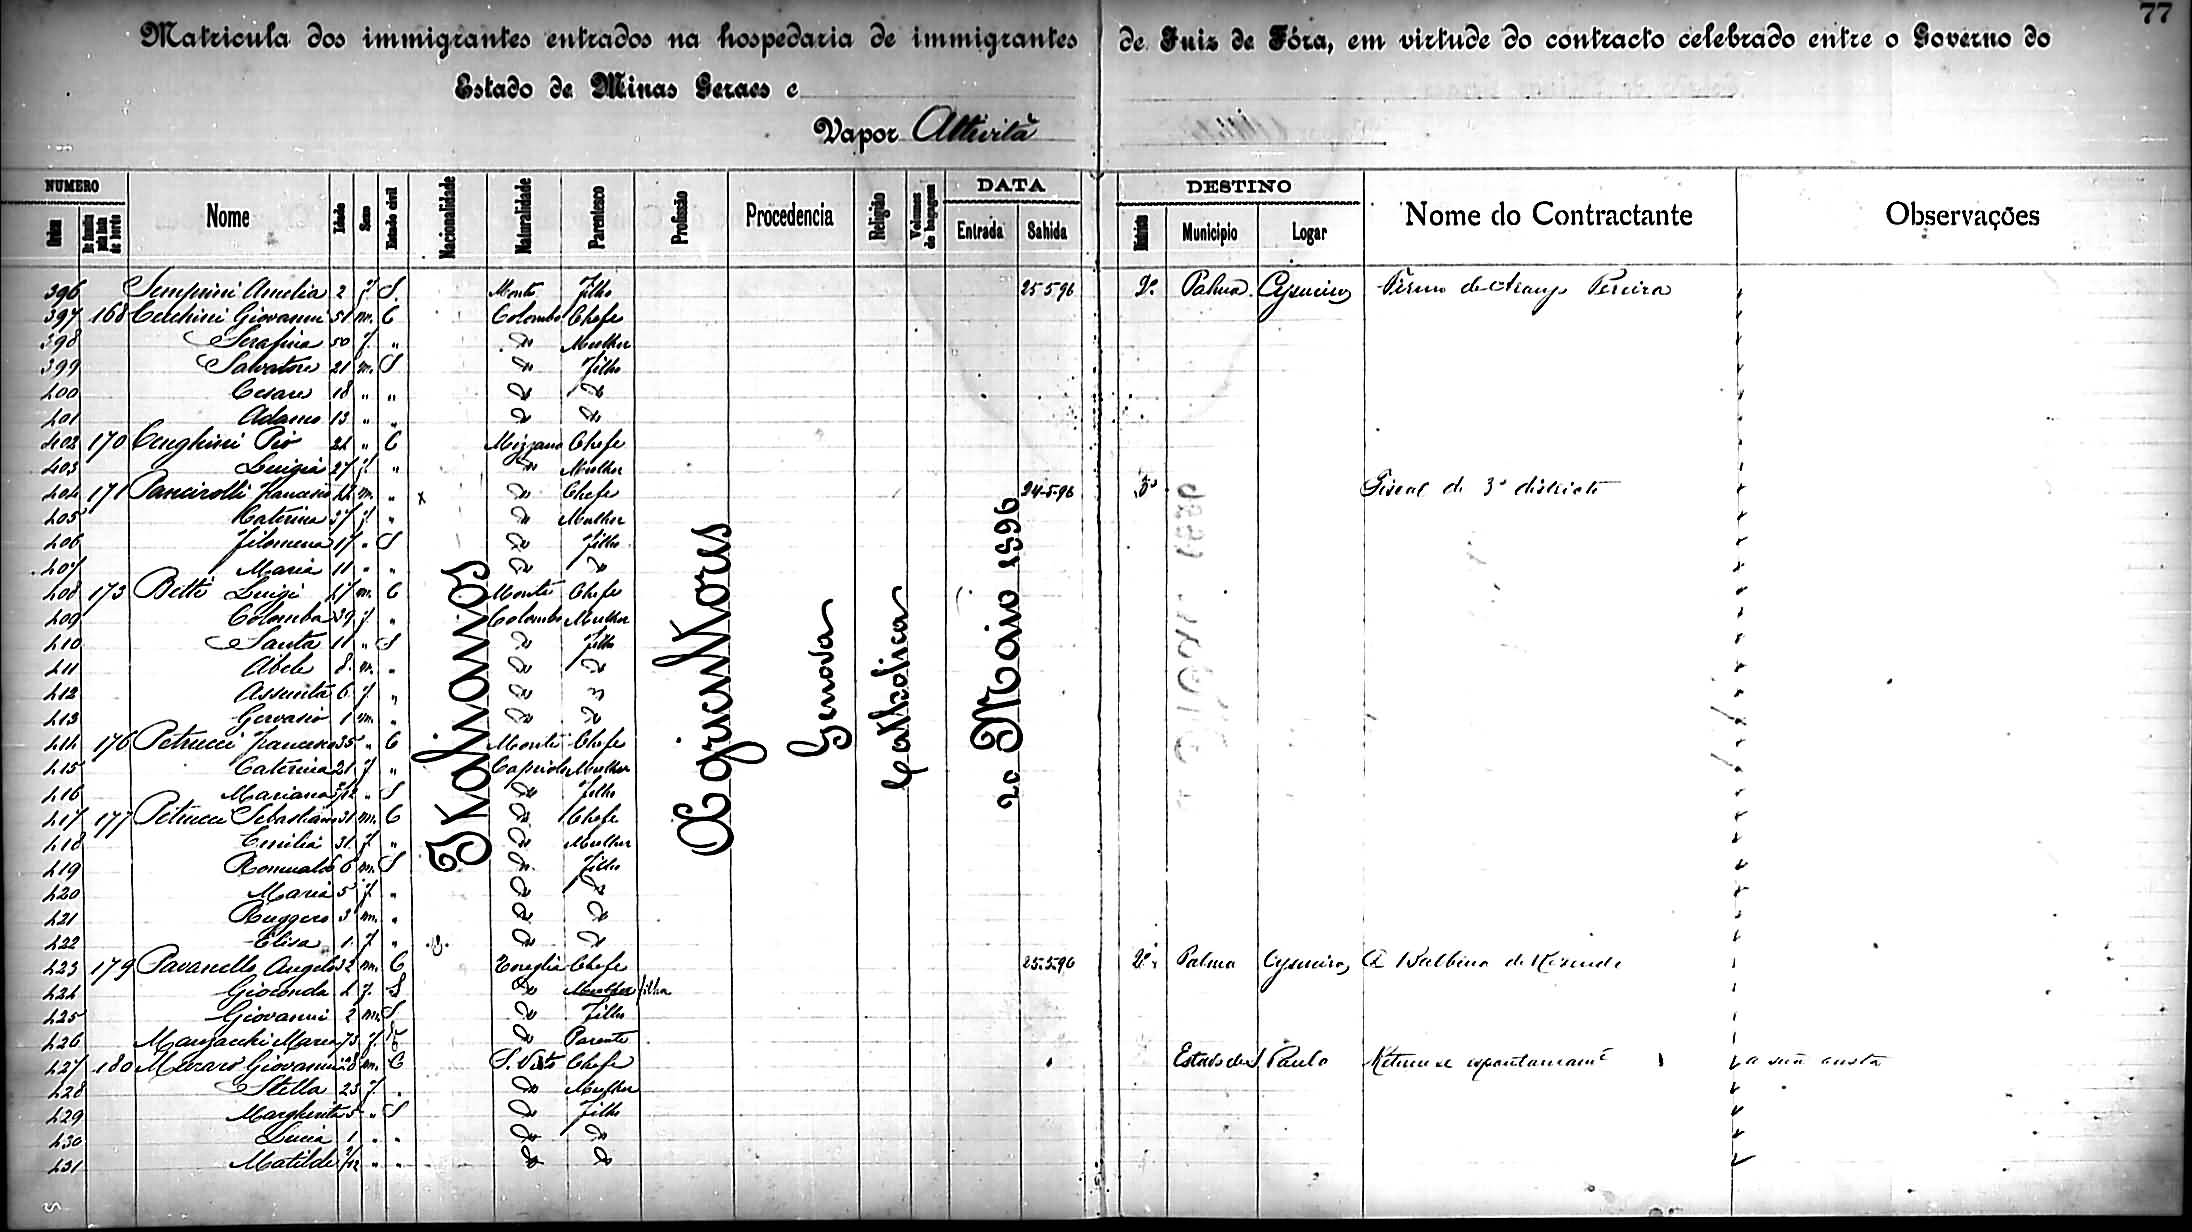 77
Matricula dos immigrantes entrados na hospedaria de immigrantes de Juiz de Fóra, em virtude do contracto celebrado entre o Governo do
Estado de Minas Geraes e
Vapor Attività
NUMERO DATA DESTINO
Ordem Nome Idade Sexo Estado civil Nacionalidade Naturalidade Parentesco Profissão Procedencia Religião Volumes de bagagem Entrada Sahida Municipio Logar Nome do Contractante Observações
Italianos
Agricultores
Genova
Catholica
20 Maio 1896
396 Semprini Amelia 2 f S. Monte filho 25-5-96 2º Palma Cysneiro Firmo de Araujo Pereira
397 168 Cecchini Giovanni 51 m. C Colombo Chefe
398 Serafina 50 f. " " Mulher
399 Salvatore 21 m. S " filho
400 Cesare 18 " " " "
401 Adamo 13 " " " "
402 170 Cenghini Pio 21 " C Mizzano Chefe
403 Luigia 27 f. " " Mulher
404 171 Pancirolli Francesco 42 m. " x " Chefe 24-5-96 3º Fiscal do 3º districto
405 Caterina 37 f. " " Mulher
406 Filomena 17 " S " filho
407 Maria 11 " " " "
408 173 Betti Luigi 47 m. C Monte Chefe
409 Colomba 39 f. " Colombo Mulher
410 Santa 11 " S " filho
411 Abele 8 m. " " "
412 Assunta 6 f. " " "
413 Gervasio 1 m. " " "
414 176 Petrucci Francesco 35 " C Monte Chefe
415 Caterina 21 f " Capriolo Mulher
416 Mariana " S " filho
417 177 Petrucci Sebastiano 31 m. C " Chefe
418 Emilia 31 f. " " Mulher
419 Romualdo 6 m. S " filho
420 Maria 5 f. " " "
421 Ruggero 3 m. " " "
422 Elisa 1 f " " "
423 179 Pavanello Angelo 32 m. C Toreglia Chefe 25-5-96 2º Palma Cysneiro A Balbino de Rezende
424 Gioconda 4 f. S " Mulher filha
425 Giovanni 2 m. S " filho
426 Maria 73 f. " Parente
427 180 Giovanni 28 m. C S. Vito Chefe Estado de S. Paulo Retirou-se espontaneamte a sua custa
428 Stella 23 f. " " Mulher
429 Margherita 5 " S " filho
430 Lucia 1 " " " "
431 Matilde " " " "